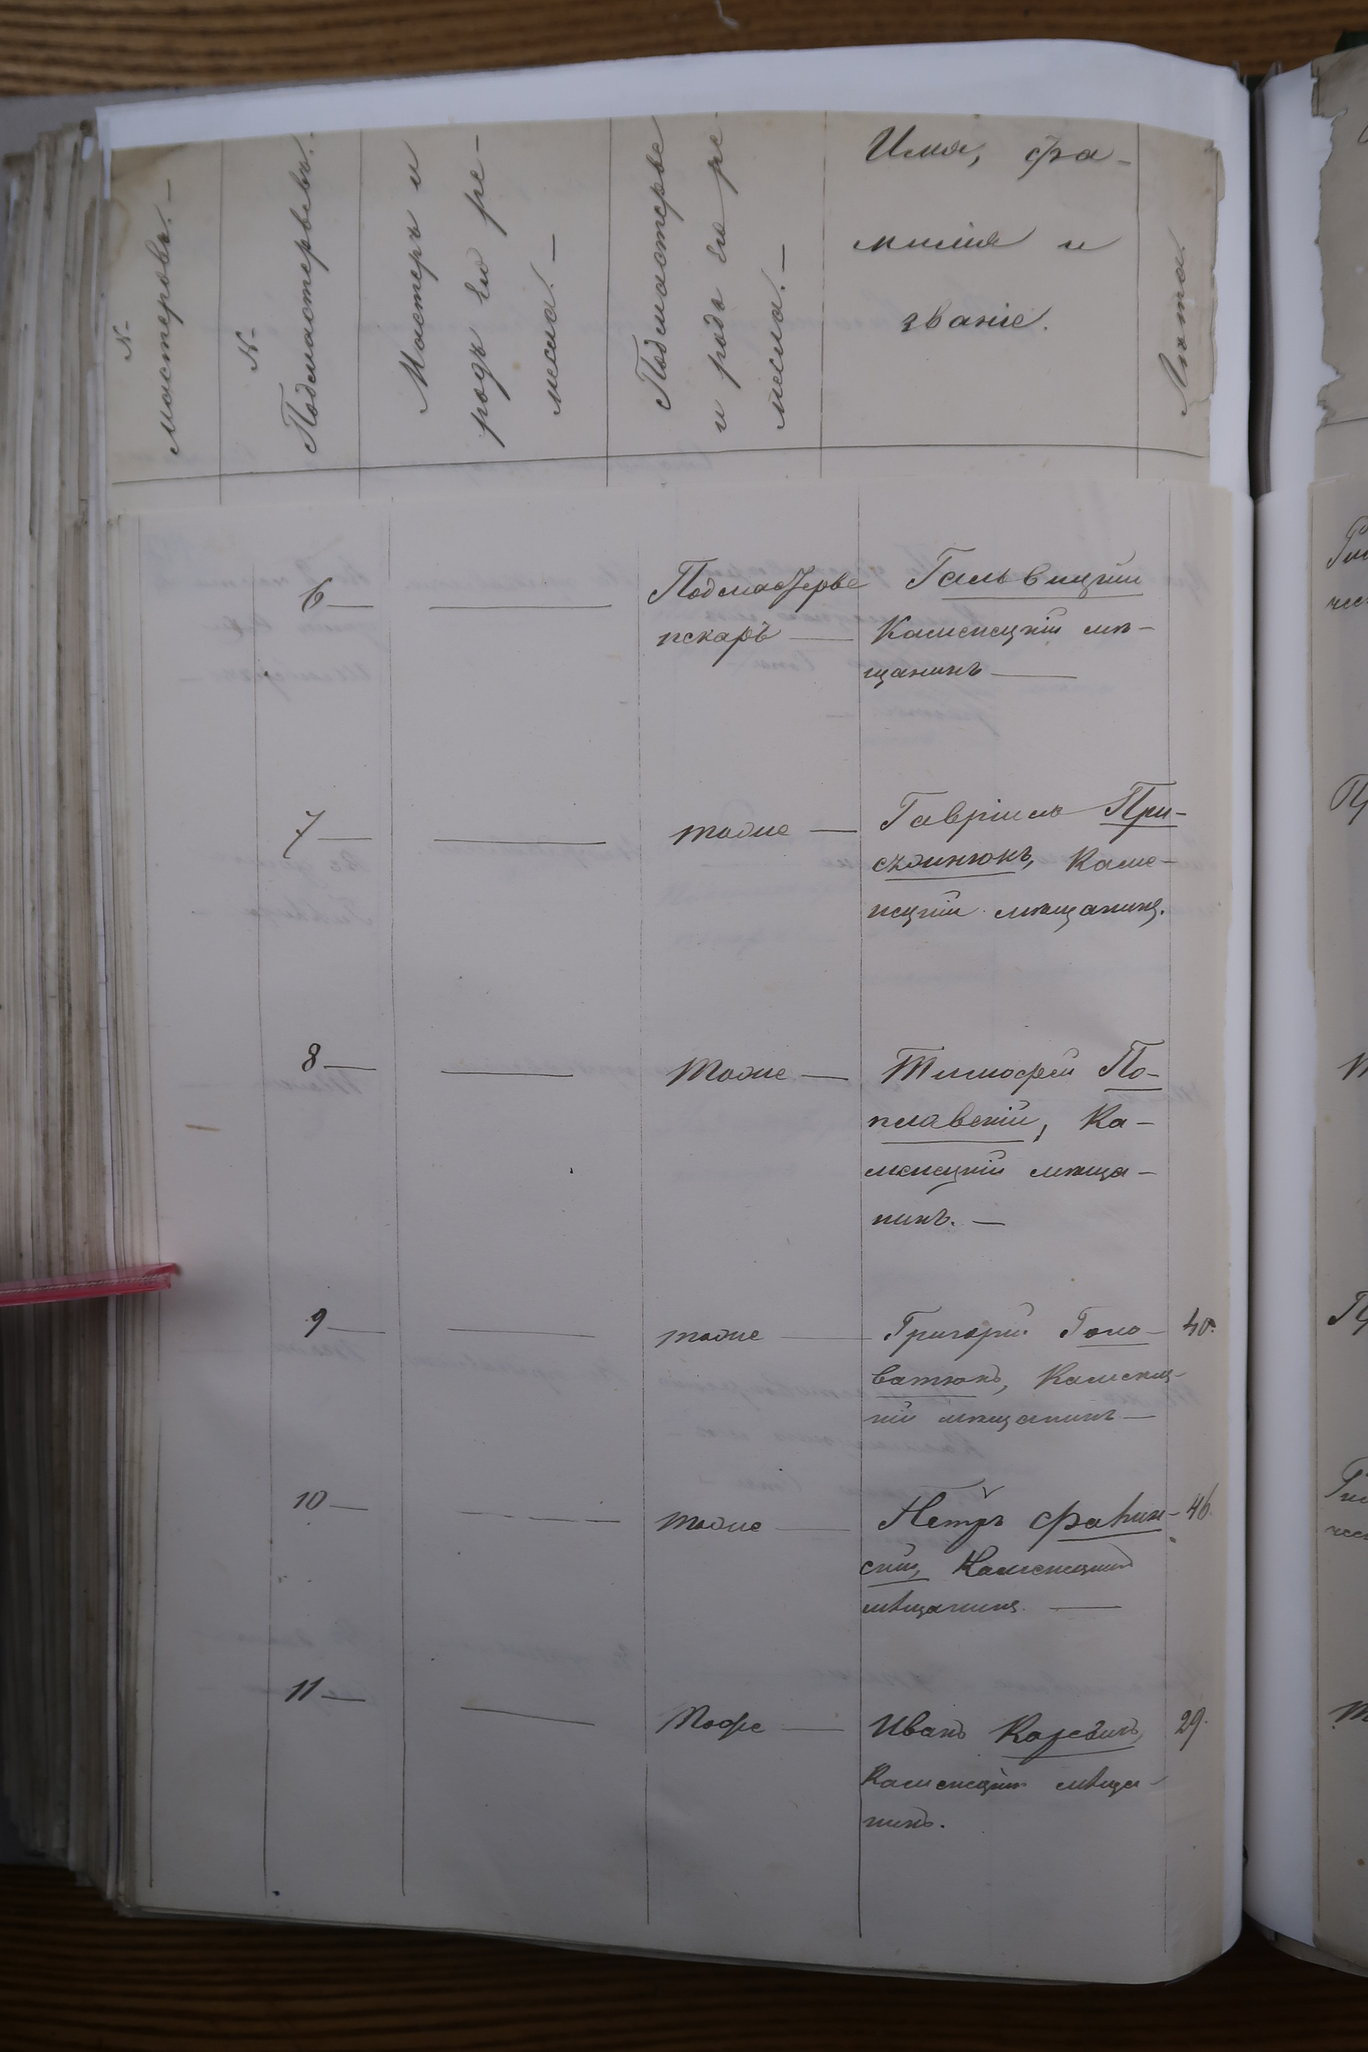 №
мастеровъ. —
№
Подмастерьевъ.
Мастеръ и
родъ его ре-
месла. —
Подмастерье
и родъ его ре-
месла. —
Имя, фа-
милія и
званіе.
Лѣта.
6 — —— Подмастерье Гальвицкій
пекарь — Каменецкій мѣ-
щанинъ —
7 — —— тоже — Гавріилъ При-
сѣжнюкъ, Каме-
нецкій мѣщанинъ.
8 — —— Тоже — Тимофей По-
плавскій, Ка-
менецкій мѣща-
нинъ. —
9 — —— тоже — Григорій Голо- 40.
ватюкъ, Каменец-
кій мѣщанинъ —
10 — —— тоже — Петръ 46.
скій, Каменецкій
мѣщанинъ. —
11 — —— Тоже — Иванъ 29.
Каменецкій мѣща-
нинъ.